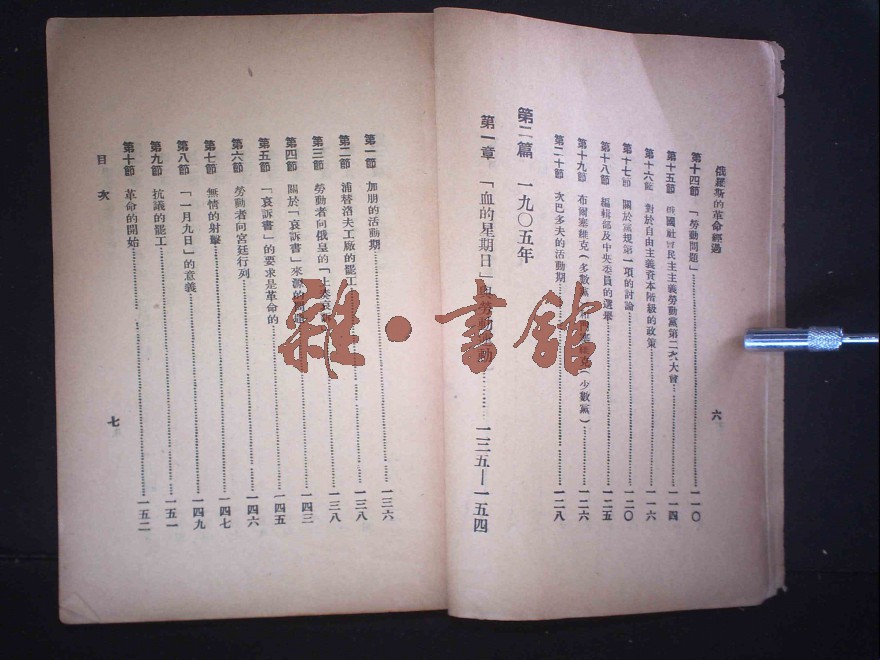 俄羅斯的革命經過
六
第十四節 「勞動問題」…… 一一〇
第十五節 俄國社會民主主義勞動黨第二次大會…… 一一四
第十六節 對於自由主義資本階級的政策…… 一一六
第十七節 關於黨規第一項的討論…… 一二〇
第十八節 編輯部及中央委員的選舉…… 一二五
第十九節 布爾塞維克(多數黨)和門塞維克(少數黨)…… 一二六
第二十節 次巴多夫的活動期…… 一二八
第二篇 一九〇五年
第一章 「血的星期日」與勞動運動…… 一三五—一五四
第一節 加朋的活動期…… 一三六
第二節 浦替洛夫工廠的罷工…… 一三八
第三節 勞動者向俄皇的「上奏哀訴…… 一三八
第四節 關於「哀訴書」來源的問題…… 一四三
第五節 「哀訴書」的要求是革命的…… 一四五
第六節 勞動者向宮廷行列…… 一四六
第七節 無情的射擊…… 一四七
第八節 「一月九日」的意義…… 一四九
第九節 抗議的罷工…… 一五一
第十節 革命的開始…… 一五二
目次
七
雜·書館